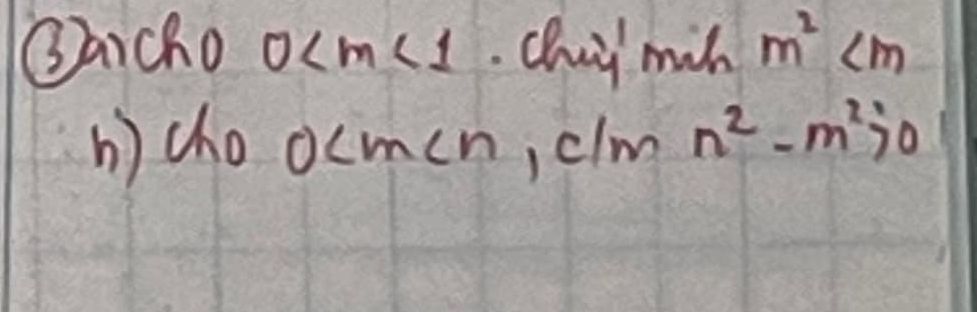 ③a) Cho 0<m<1. Chứng minh m² <m
b) Cho 0<m<n, c/m n² - m² >0